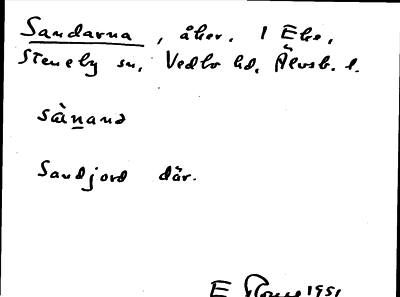 Sandarna, åker. 1 Eke,
Steneby sn, Vedbo hd, Älvsb. l.
sànand
Sandjord där.
E 1951